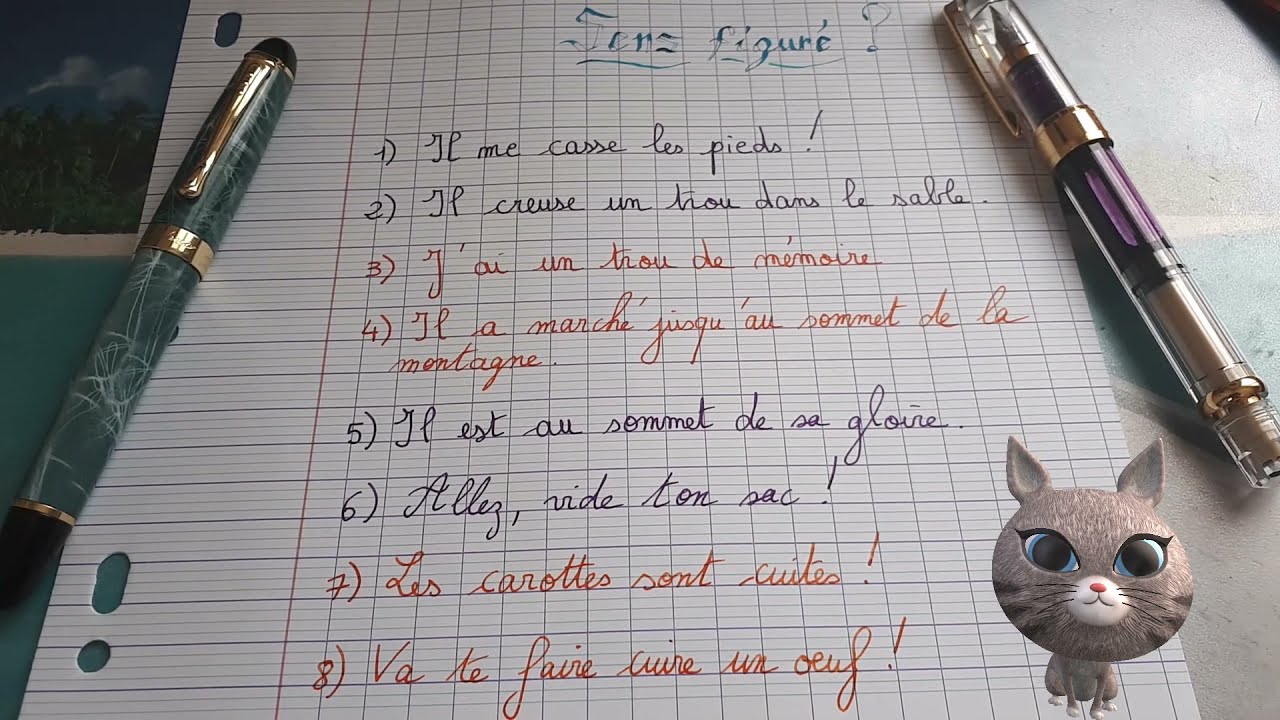 Sens figuré ?
1) Il me casse les pieds !
2) Il creuse un trou dans le sable.
3) J'ai un trou de mémoire
4) Il a marché jusqu'au sommet de la
montagne.
5) Il est au sommet de sa gloire.
6) Allez, vide ton sac !
7) Les carottes sont cuites !
8) Va te faire cuire un oeuf !